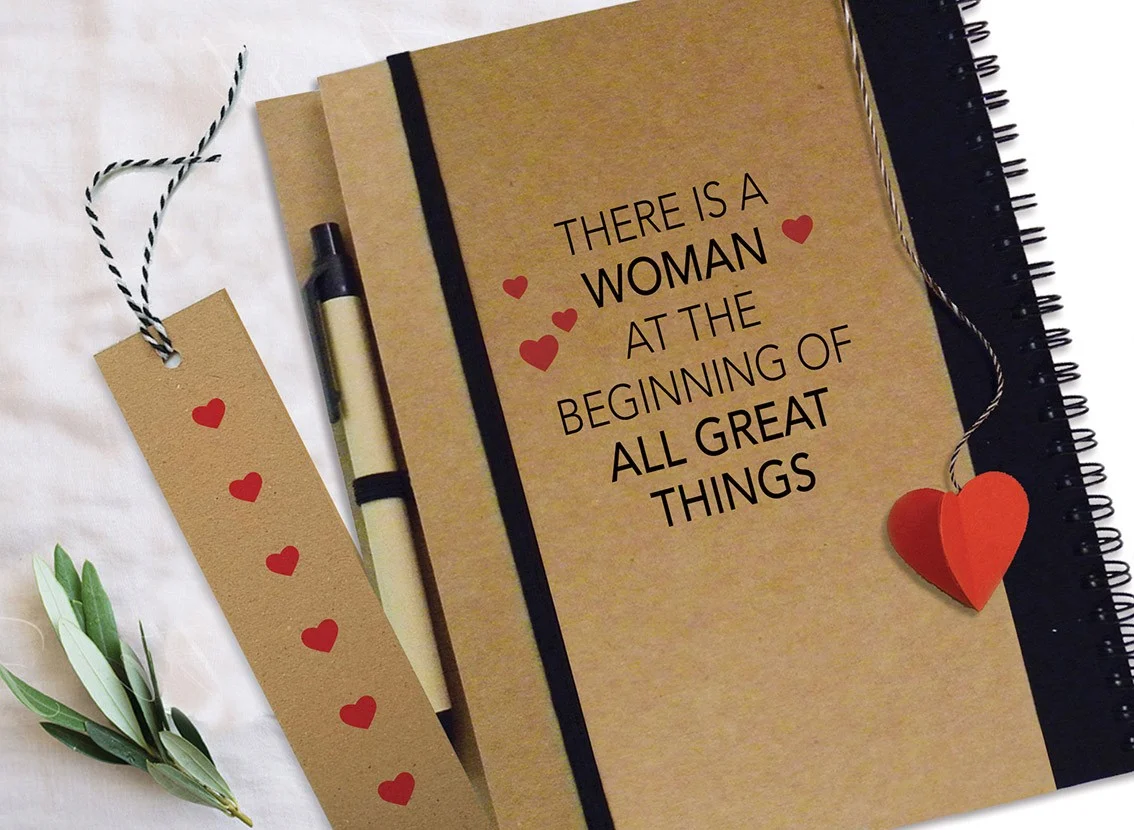 THERE IS A
WOMAN
AT THE
BEGINNING OF
ALL GREAT
THINGS